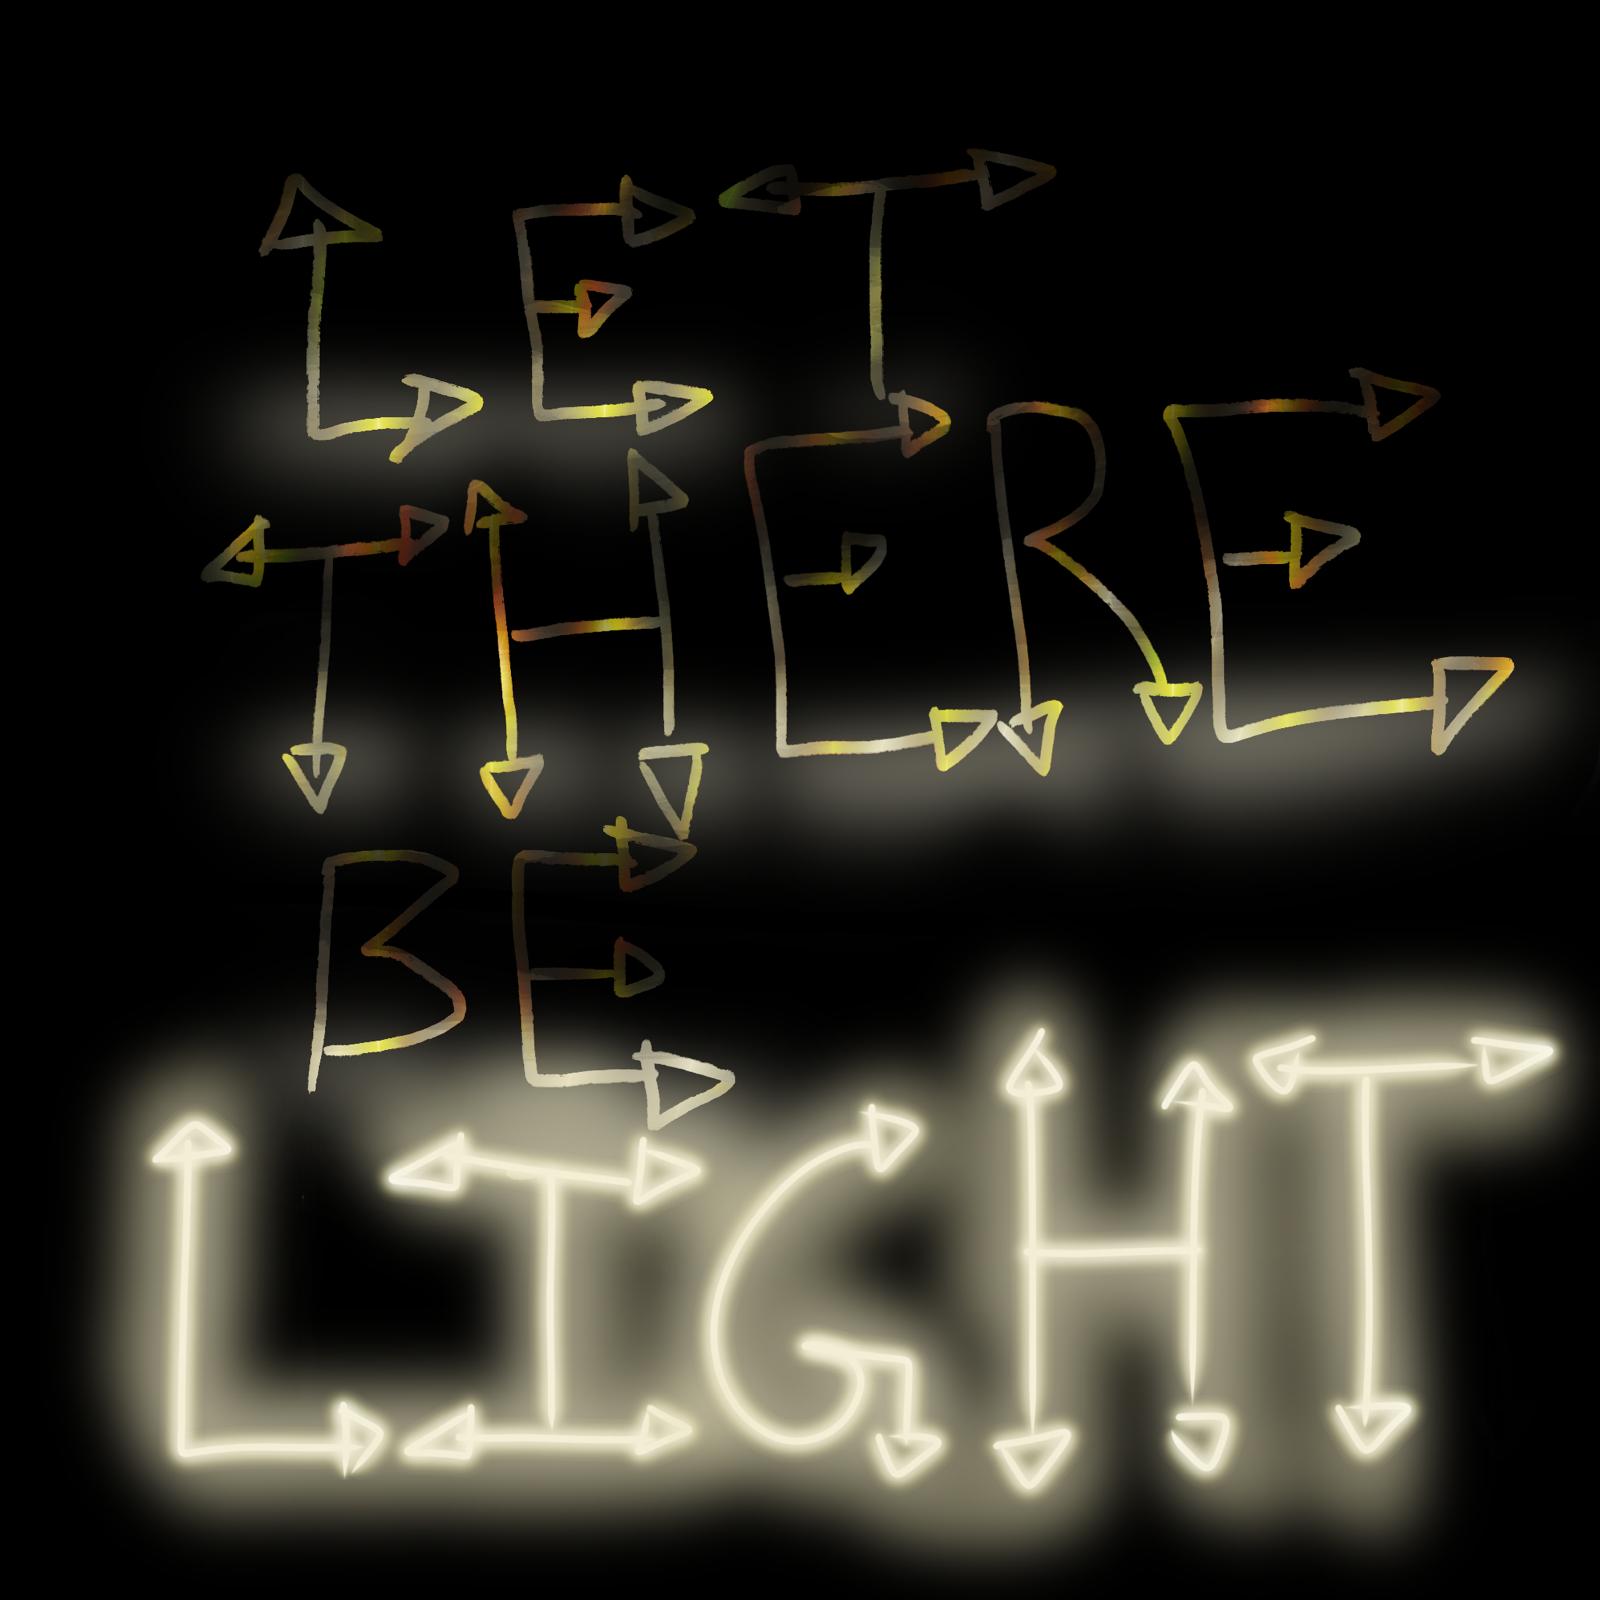 LET
THERE
BE
LIGHT